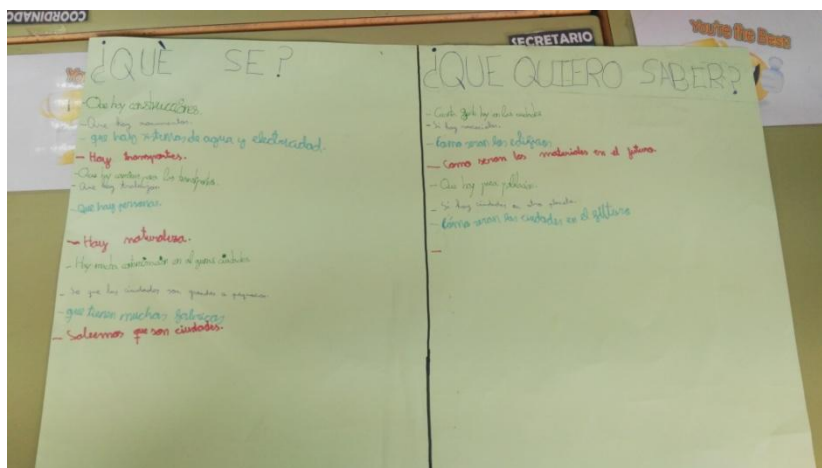 COORDINADO
SECRETARIO
You're the Best
¿QUÈ SE?
- Que hay construcciones.
- Que hay monumentos.
- que hay sistemas de agua y electricidad.
- Hay transportes.
- Que hay
- Que hay
- Que hay personas.
- Hay naturaleza.
- Hay mucha contaminación en algunas ciudades
- Se que las ciudades son grandes o pequeñas
- que tienen muchas fabricas
- Sabemos que son ciudades.
¿QUE QUIERO SABER?
- hay en las ciudades
- Si hay
- Como seran los edificios
- Como seran los materiales en el futuro.
- Que hay
- Si hay ciudades en otro planeta.
- Cómo seran las ciudades en el futuro
-